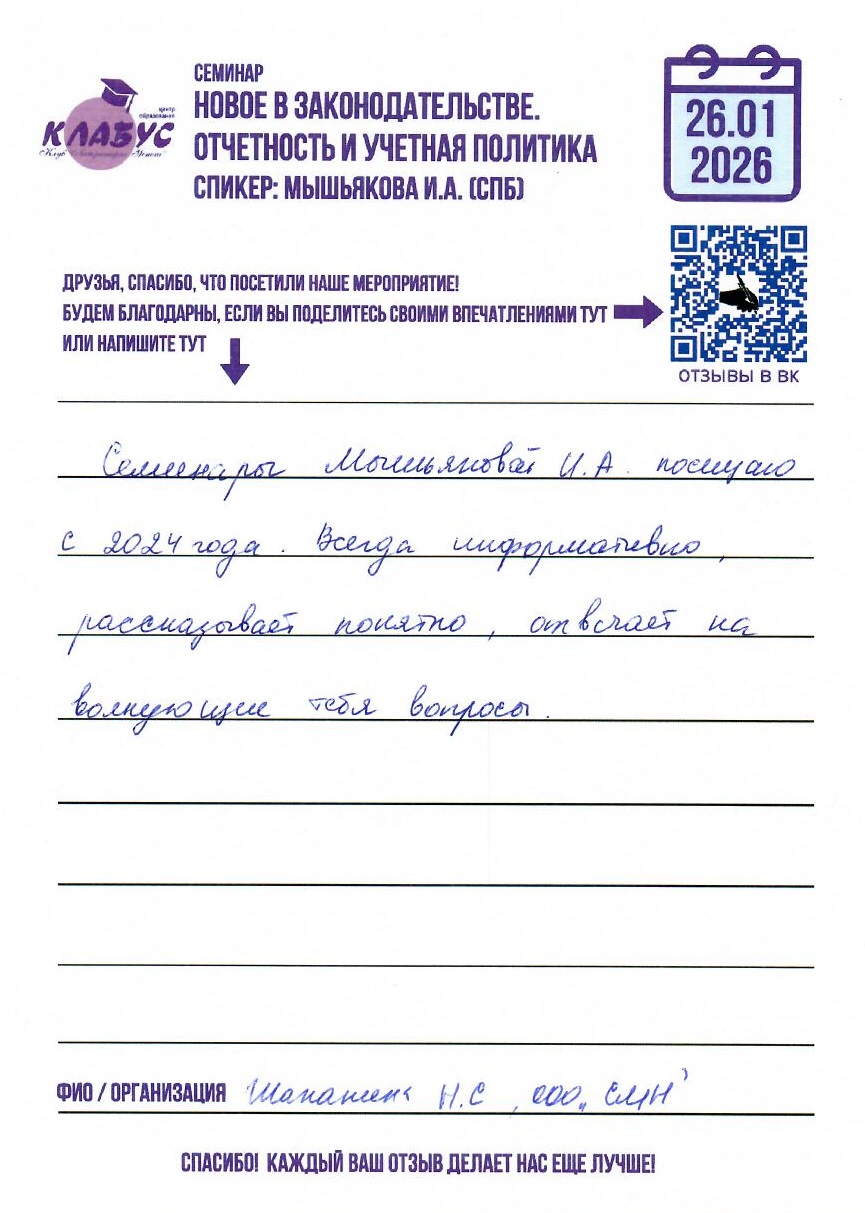 СЕМИНАР
НОВОЕ В ЗАКОНОДАТЕЛЬСТВЕ.
ОТЧЕТНОСТЬ И УЧЕТНАЯ ПОЛИТИКА
СПИКЕР: МЫШЬЯКОВА И.А. (СПБ)
центр
образования
КЛАБУС
26.01
2026
ДРУЗЬЯ, СПАСИБО, ЧТО ПОСЕТИЛИ НАШЕ МЕРОПРИЯТИЕ!
БУДЕМ БЛАГОДАРНЫ, ЕСЛИ ВЫ ПОДЕЛИТЕСЬ СВОИМИ ВПЕЧАТЛЕНИЯМИ ТУТ
ИЛИ НАПИШИТЕ ТУТ
ОТЗЫВЫ В ВК
Семинары Мышьяковой И.А. посещаю
с 2024 года. Всегда информативно,
рассказывает понятно, отвечает на
волнующие тебя вопросы.
ФИО / ОРГАНИЗАЦИЯ Н.С, ООО
СПАСИБО! КАЖДЫЙ ВАШ ОТЗЫВ ДЕЛАЕТ НАС ЕЩЕ ЛУЧШЕ!